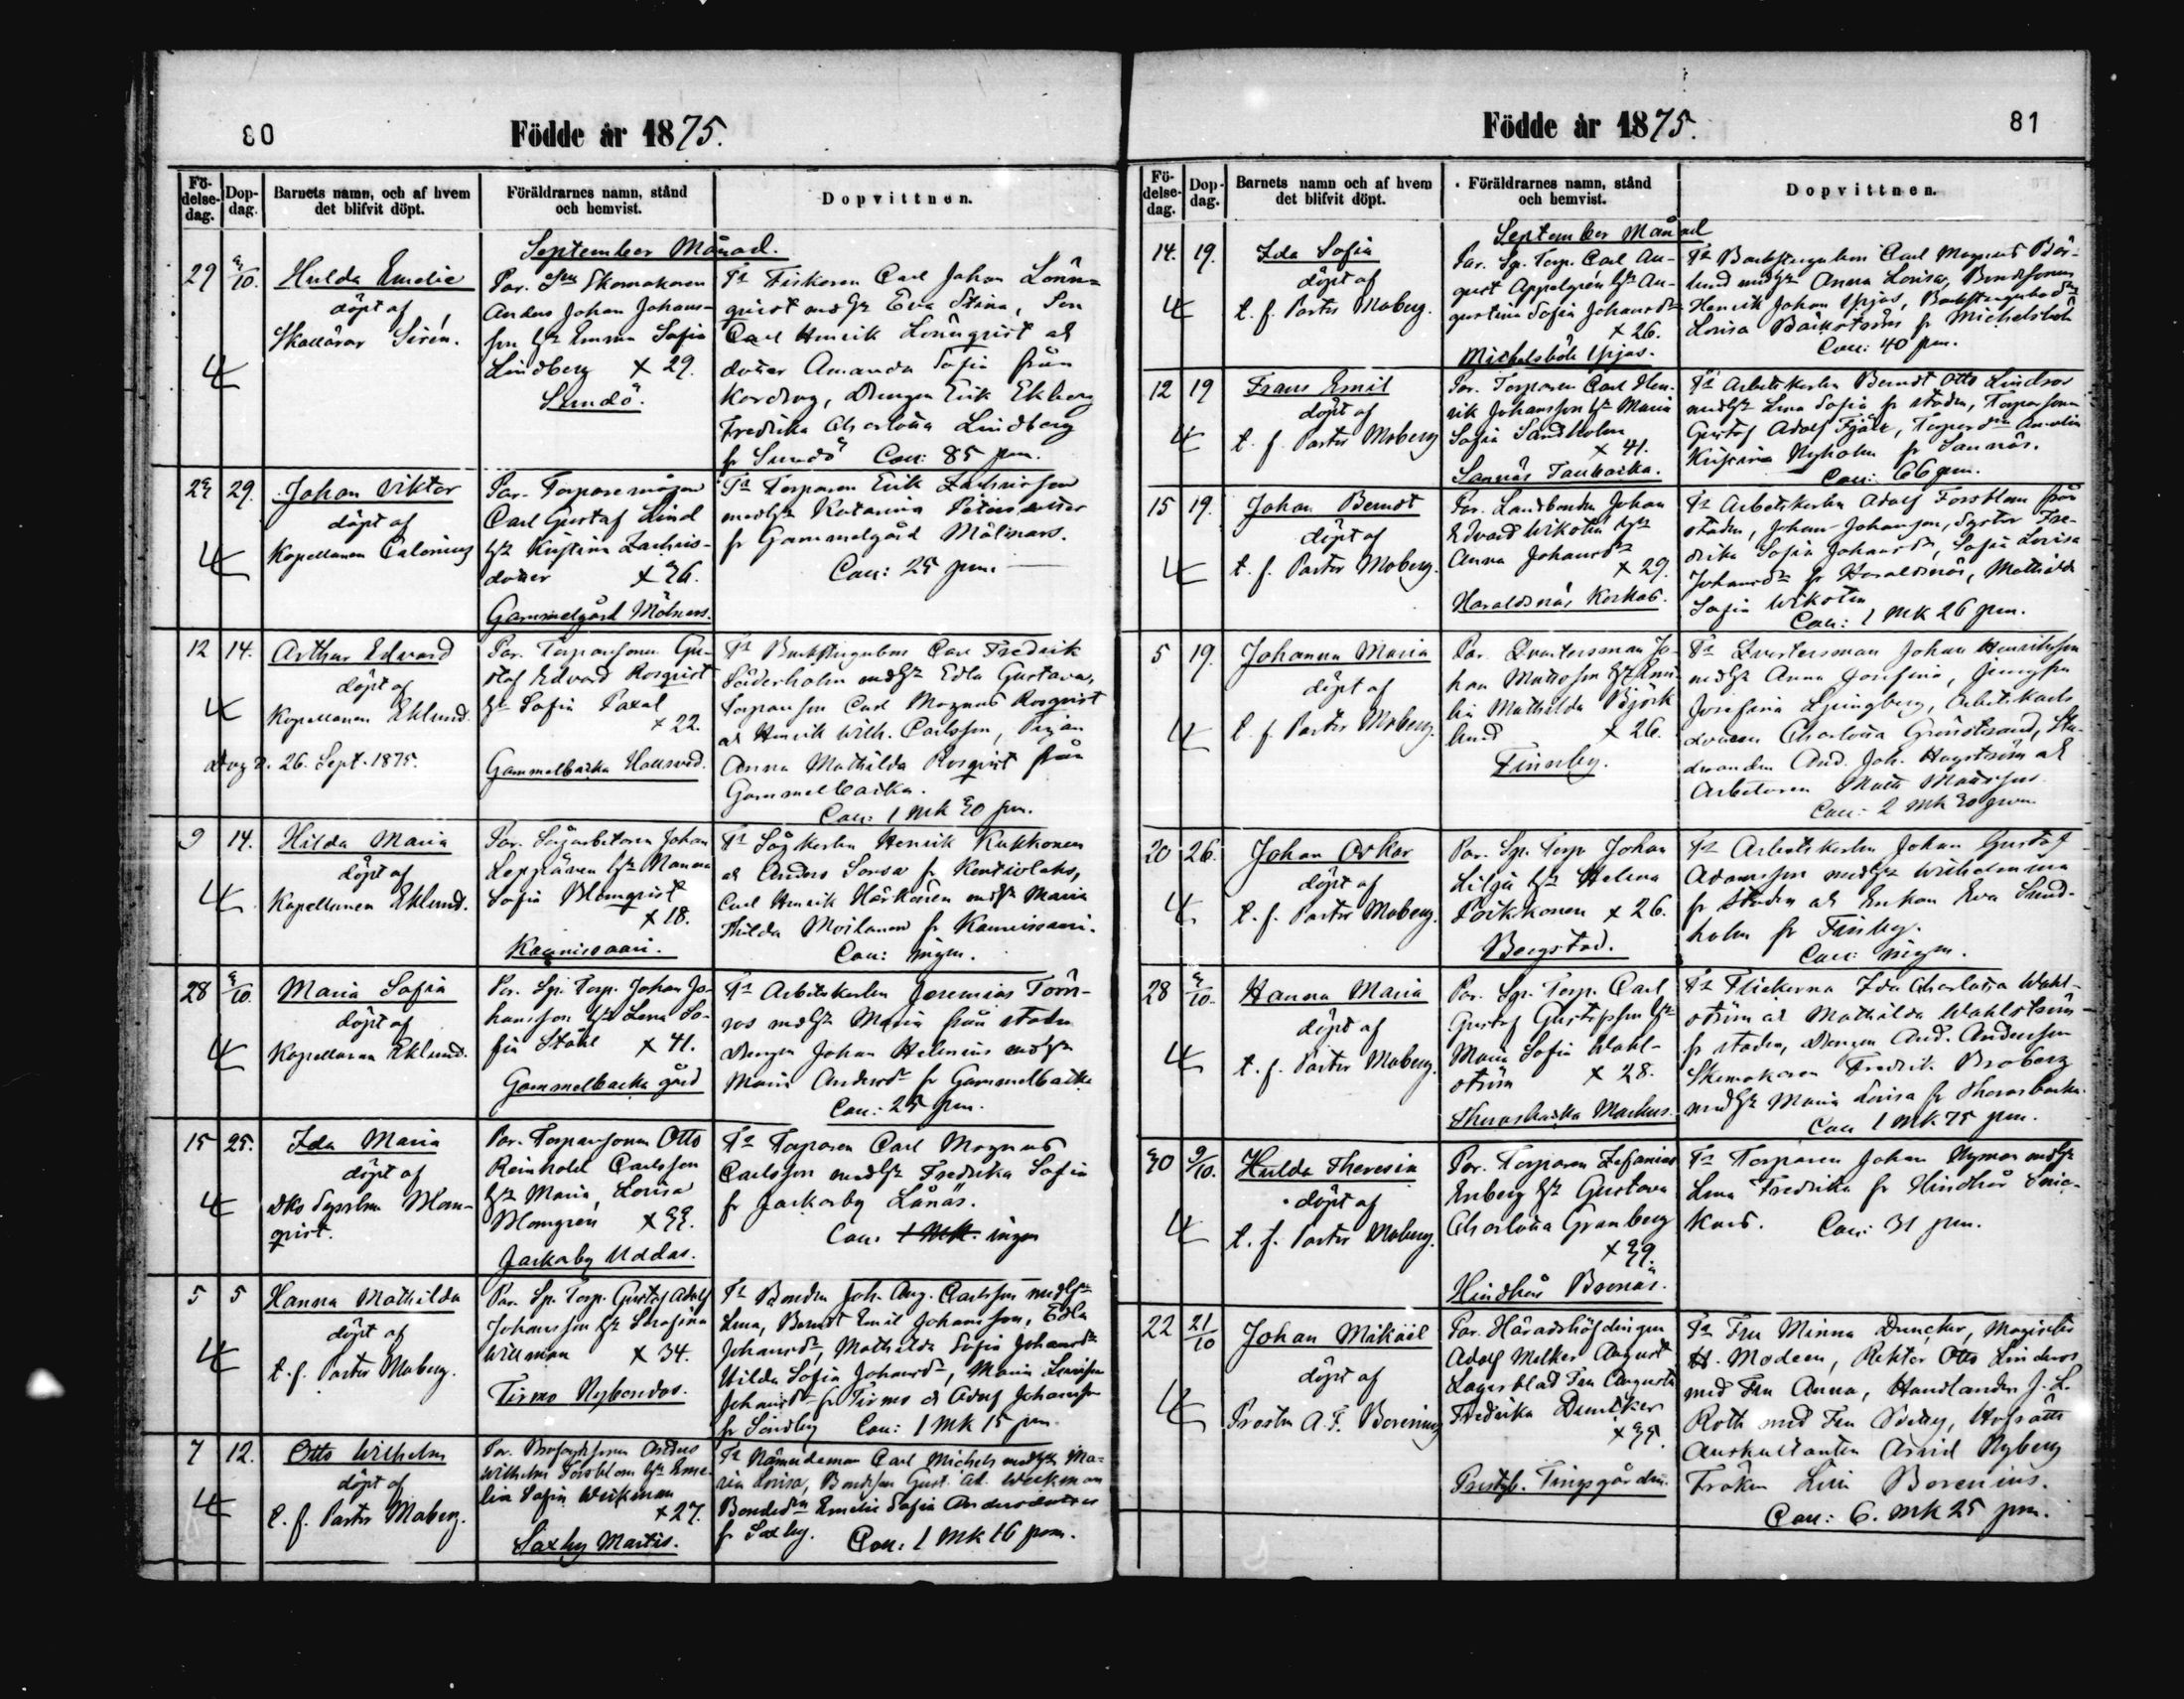 80
Födde år 1875.
Fö-
delse-
dag.
Dop-
dag.
Barnets namn, och af hvem
det blifvit döpt.
Föräldrarnes namn, stånd
och hemvist.
Dopvittnen.
September Månad.
29
3/10.
Hulda Emelie
döpt af
Skolläraren Sirén.
Par. Skomakaren
Anders Johan Johans-
son hst Emma Sofia
Lindberg x 29.
Sundö.
Ts Fiskaren Carl Johan Lönn-
quist med hst Eva Stina, Son
Carl Henrik Lönnquist ak
dotter Amanda Sofia från
Drengen Erik Ekberg
Fredrika Charlotta Lindberg
fr Sundö Coll: 85 pm.
23
29.
Johan Viktor
döpt af
Kapellanen Calonius
Par. Torparemågen
Carl Gustaf Lind
hst Kristina Zachris-
dotter x 36.
Gammelgård Mölnars.
Ts Torparen Erik Zachrisson
med hst Katarina Petersdotter
fr Gammelgård Mölnars.
Coll: 25 pm.
12
14.
Arthur Edvard
döpt af
Kapellanen Eklund.
dog d. 26. Sept. 1875.
Par. Torparsonen Gu-
staf Edvard Rosqvist
hst Sofia Paxal
x 22.
Gammelbacka
Ts Backstugubon Carl Fredrik
Söderholm med hst Edla Gustava,
Torparson Carl Magnus Rosqvist
ak Henrik Wilh. Carlsson, Pigan
Anna Mathilda Rosqvist från
Gammelbacka.
Coll: 1 mk 30 pm.
9
14.
Hilda Maria
döpt af
Kapellanen Eklund.
Par. Sågarbetaren Johan
Leppänen hst Nanna
Sofia Blomqvist
x 18.
Kaunissaari.
Ts Sågkarlen Henrik Kukkonen
ak Anders Sorsa fr Kontiolaks,
Carl Henrik Härkönen med hst Maria
Thilda Moilanen fr Kaunissaari.
Coll: ingen.
28
3/10.
Maria Sofia
döpt af
Kapellanen Eklund.
Par. Sp. Torp. Johan Jo-
hansson hst Lena So-
fia Ståhl x 41.
Gammelbacka gård
Ts Arbetskarlen Jeremias Törn-
ros med hst Maria från staden
Drengen Johan Helenius med hst
Maria Andersdr fr Gammelbacka
Coll: 25 pm.
15
25.
Ida Maria
döpt af
Blom-
qvist.
Par. Torparsonen Otto
Reinhold Carlsson
hst Maria Lovisa
Blomgren x 33.
Jackarby Uddas.
Ts Torparen Carl Magnus
Carlsson med hst Fredrika Sofia
fr Jackarby Lånäs.
Coll. 1 mk. ingen
5
5
Hanna Mathilda
döpt af
t. f. Pastor Moberg.
Par. Sp. Torp. Gustaf Adolf
Johansson hst Serafina
Willman x 34.
Tirmo Nybondas.
Ts Bonden Joh. Aug. Carlsson med hst
Lena, Berndt Emil Johansson, Edla
Johansdr, Mathilda Sofia Johansdr
Hilda Sofia Johansdr, Maria Lovisa
Johansdr fr Tirmo ak Adolf Johansson
fr Sondby Coll: 1 mk 15 pm.
7
12.
Otto Wilhelm
döpt af
t. f. Pastor Moberg.
Par. Anders
Wilhelm Forsblom hst Eme-
lia Sofia Weckman
x 27.
Saxby Martis.
Ts Nämndeman Carl Michels med hst Ma-
ria Lovisa, Bondeson Gust. Ad. Weckman
Bondedr Emelie Sofia Andersdotter
fr Saxby. Coll: 1 mk 16 pm.
81
Födde år 1875.
Fö-
delse-
dag.
Dop-
dag.
Barnets namn och af hvem
det blifvit döpt.
Föräldrarnes namn, stånd
och hemvist.
Dopvittnen.
September Månad
14.
19.
Ida Sofia
döpt af
t. f. Pastor Moberg.
Par. Sp. Torp. Carl Au-
gust Appelgrén hst Au-
gustina Sofia Johansdr
x 26.
Michelsböle Ypjas.
Ts Backstugubon Carl Magnus Bär-
lund med hst Anna Lovisa, Bondsonen
Henrik Johan Ypjas, Backstugubodr
Lovisa Bäckström fr Michelsböle
Coll: 40 pm.
12
19
Frans Emil
döpt af
t. f. Pastor Moberg
Par. Torparen Carl Hen-
rik Johansson hst Maria
Sofia Sandholm
x 41.
Sannäs Tallbacka.
Ts Arbetskarlen Berndt Otto Lindroos
med hst Lena Sofia fr staden, Torparsonen
Gustaf Adolf Fjäll, Torpardr Amalia
Kristina Nyholm fr Sannäs.
Coll: 66 pm.
15
19.
Johan Berndt
döpt af
t. f. Pastor Moberg.
Par. Landbonden Johan
Edvard Wikstén hst
Anna Johansdr
x 29.
Haraldsnäs Korkas.
Ts Arbetskarlen Adolf Forsblom från
staden, Johan Johansson, Syster Fre-
drika Sofia Johansdr, Sofia Lovisa
Johansdr fr Haraldsnäs, Mathilda
Sofia Wikstén
Coll: 1 mk 26 pm.
5
19.
Johanna Maria
döpt af
t. f. Pastor Moberg.
Par. Qvartersman Jo-
han Mattsson hst Emi-
lia Mathilda Björk-
lund x 26.
Finnby.
Ts Qvartersman Johan Henriksson
med hst Anna Josefina, Jungfru
Josefina Ljungberg, Arbetskarls
dottren Charlotta Grönstrand, Stu-
deranden And. Joh. Hagström ak
Arbetaren Matts Mattsson
Coll: 2 mk 30 pm
20
26.
Johan Oskar
döpt af
t. f. Pastor Moberg.
Par. Sp. Torp Johan
Lilja hst Helena
Poikkonen x 26.
Borgstad.
Ts Arbetskarlen Johan Gustaf
Adamsson med hst Wilhelmina
fr Staden ak Enkan Eva Sund-
holm fr Finby.
Coll: ingen.
28
3/10.
Hanna Maria
döpt af
t. f. Pastor Moberg.
Par. Sp. Torp. Carl
Gustaf Gustafsson hst
Maria Sofia Wahl-
ström x 28.
Markus.
Ts Flickorna Ida Charlotta Wahl-
ström ak Mathilda Wahlström
fr staden, Drengen And. Andersson
Skomakaren Fredrik Broberg
med hst Maria Lovisa fr
Coll 1 mk 75 pm.
30
9/10.
Hulda Theresia
döpt af
t. f. Pastor Moberg.
Par. Torparen Zefanias
Enberg hst Gustava
Charlotta Granberg
x 39.
Hindhår Boenäs.
Ts Torparen Johan Nyman med hst
Lena Fredrika fr Hindhår Snic-
kars. Coll: 31 pm.
22
21/10
Johan Mikael
döpt af
Prosten A. F. Borenius
Par. Häradshöfdingen
Adolf Melker August
Lagerblad Fru Augusta
Fredrika Duncker
x 35.
Prestgb. Tingsgården.
Ts Fru Minna Duncker, Magister
H. Modeen, Rektor Otto Linderos
med Fru Anna, Handlanden J. L.
Roth med Fru Hofrätts
Auskultanten Arvid Nyberg
Fröken Lilli Borenius.
Coll: 6. mk 25 pm.